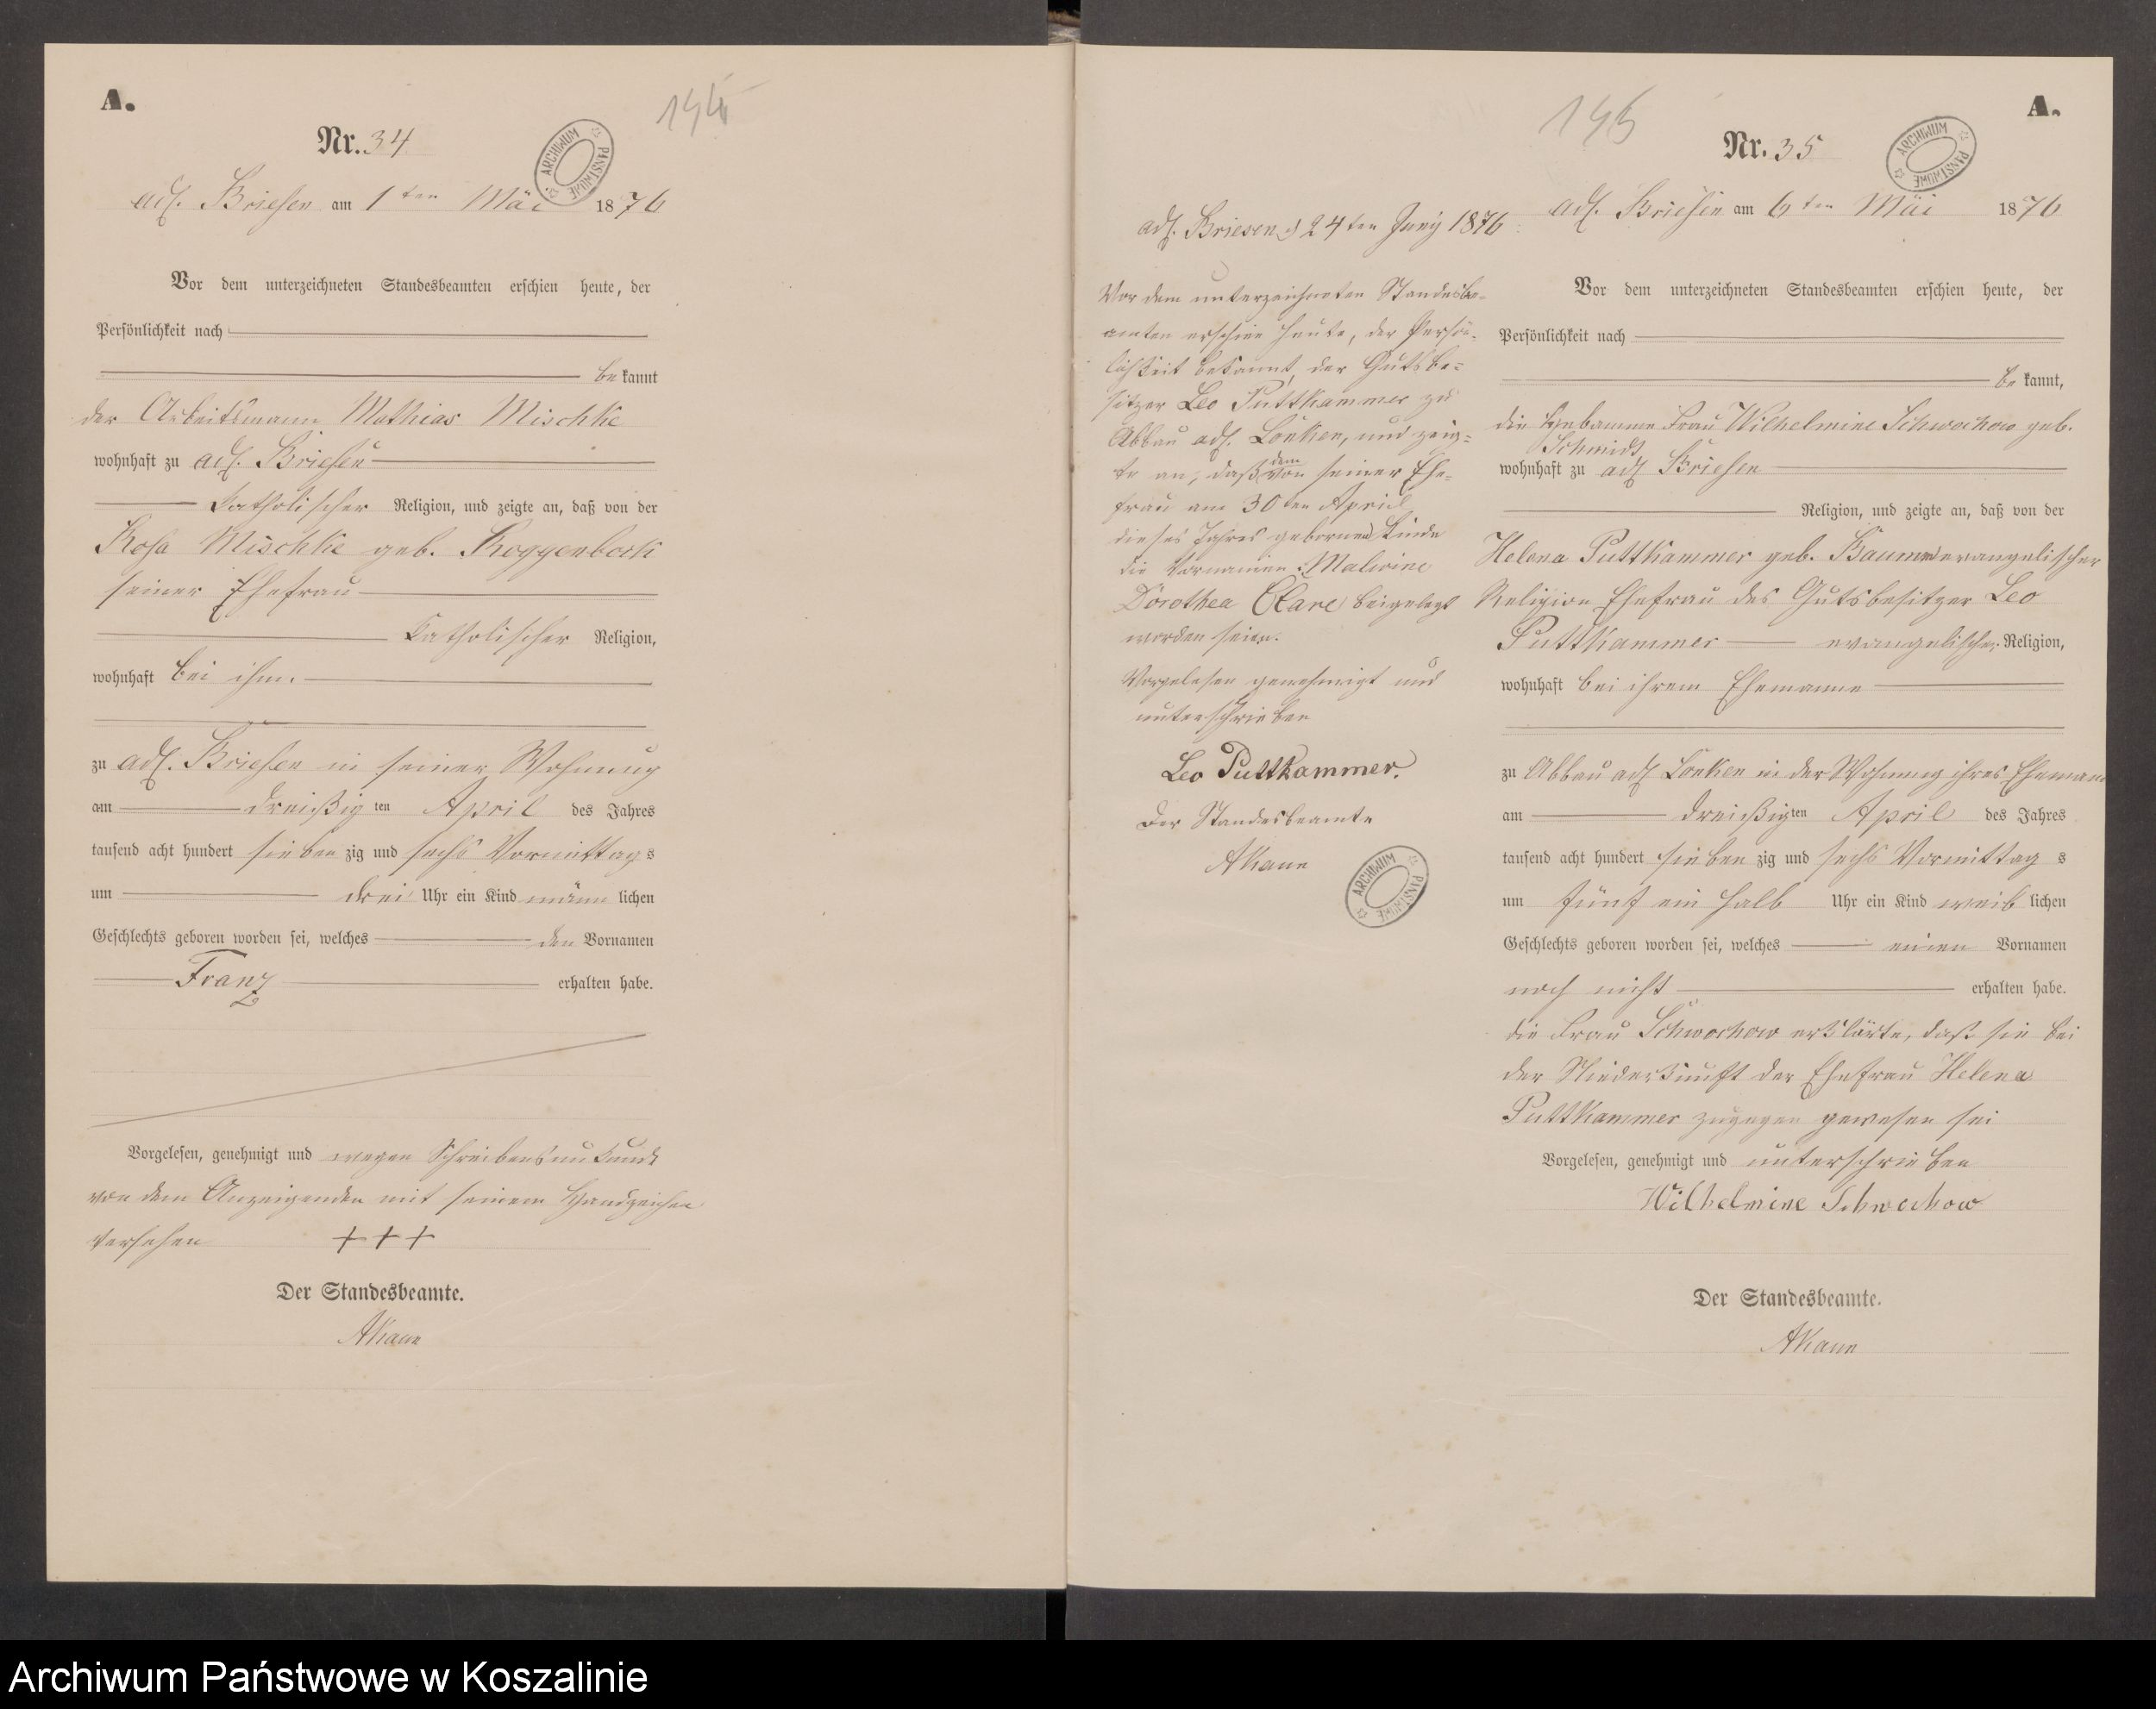 A.
144
Nr. 34
ARCHIWUM PAŃSTWOWE
adl. Briesen am 1ten Mai 1876
Vor dem unterzeichneten Standesbeamten erschien heute, der
Persönlichkeit nach
bekannt
der Arbeitsmann Mathias Mischke
wohnhaft zu adl. Briesen
katholischer Religion, und zeigte an, daß von der
Rosa Mischke geb. Roggenbock
seiner Ehefrau
katholischer Religion,
wohnhaft bei ihm.
zu adl. Briesen in seiner Wohnung
am dreißigten April des Jahres
tausend acht hundert siebenzig und sechs Vormittags
um drei Uhr ein Kind männlichen
Geschlechts geboren worden sei, welches den Vornamen
Franz erhalten habe.
Vorgelesen, genehmigt und wegen Schreibensunkunde
von dem Anzeigenden mit seinem Handzeichen
versehen +++
Der Standesbeamte.
AKann
A.
145
Nr. 35
ARCHIWUM PAŃSTWOWE
adl. Briesen am 6ten Mai 1876
Vor dem unterzeichneten Standesbeamten erschien heute, der
Persönlichkeit nach
bekannt,
die Hebamme Frau Wilhelmine Schwochow geb.
Schmidt
wohnhaft zu adl Briesen
Religion, und zeigte an, daß von der
Helena Puttkammer geb. evangelischer
Religion Ehefrau des Gutsbesitzer Leo
Puttkammer evangelischer Religion,
wohnhaft bei ihrem Ehemanne
zu Abbau adl Lonken in der Wohnung ihres Ehemann
am dreißigten April des Jahres
tausend acht hundert siebenzig und sechs Vormittags
um fünf ein halb Uhr ein Kind weiblichen
Geschlechts geboren worden sei, welches einen Vornamen
noch nicht erhalten habe.
die Frau Schwochow erklärte, daß sie bei
der Niederkunft der Ehefrau Helena
Puttkammer zugegen gewesen sei
Vorgelesen, genehmigt und unterschrieben
Wilhelmine Schwochow
Der Standesbeamte.
AKann
adl. Briesen, d 24ten Juny 1876
Vor dem unterzeichneten Standesbe-
amten erschien heute, der Persön-
lichkeit bekannt, der Gutsbe-
sitzer Leo Puttkammer zu
Abbau adl. Lonken, und zeig-
te an, daß dem von seiner Ehe-
frau am 30ten April
dieses Jahres gebornen Kinde
die Vornamen: Malwine
Dorothea Clare beigelegt
worden seien.
Vorgelesen genehmigt und
unterschrieben
Leo Puttkammer.
Der Standesbeamte
AKann
ARCHIWUM PAŃSTWOWE
Archiwum Państwowe w Koszalinie